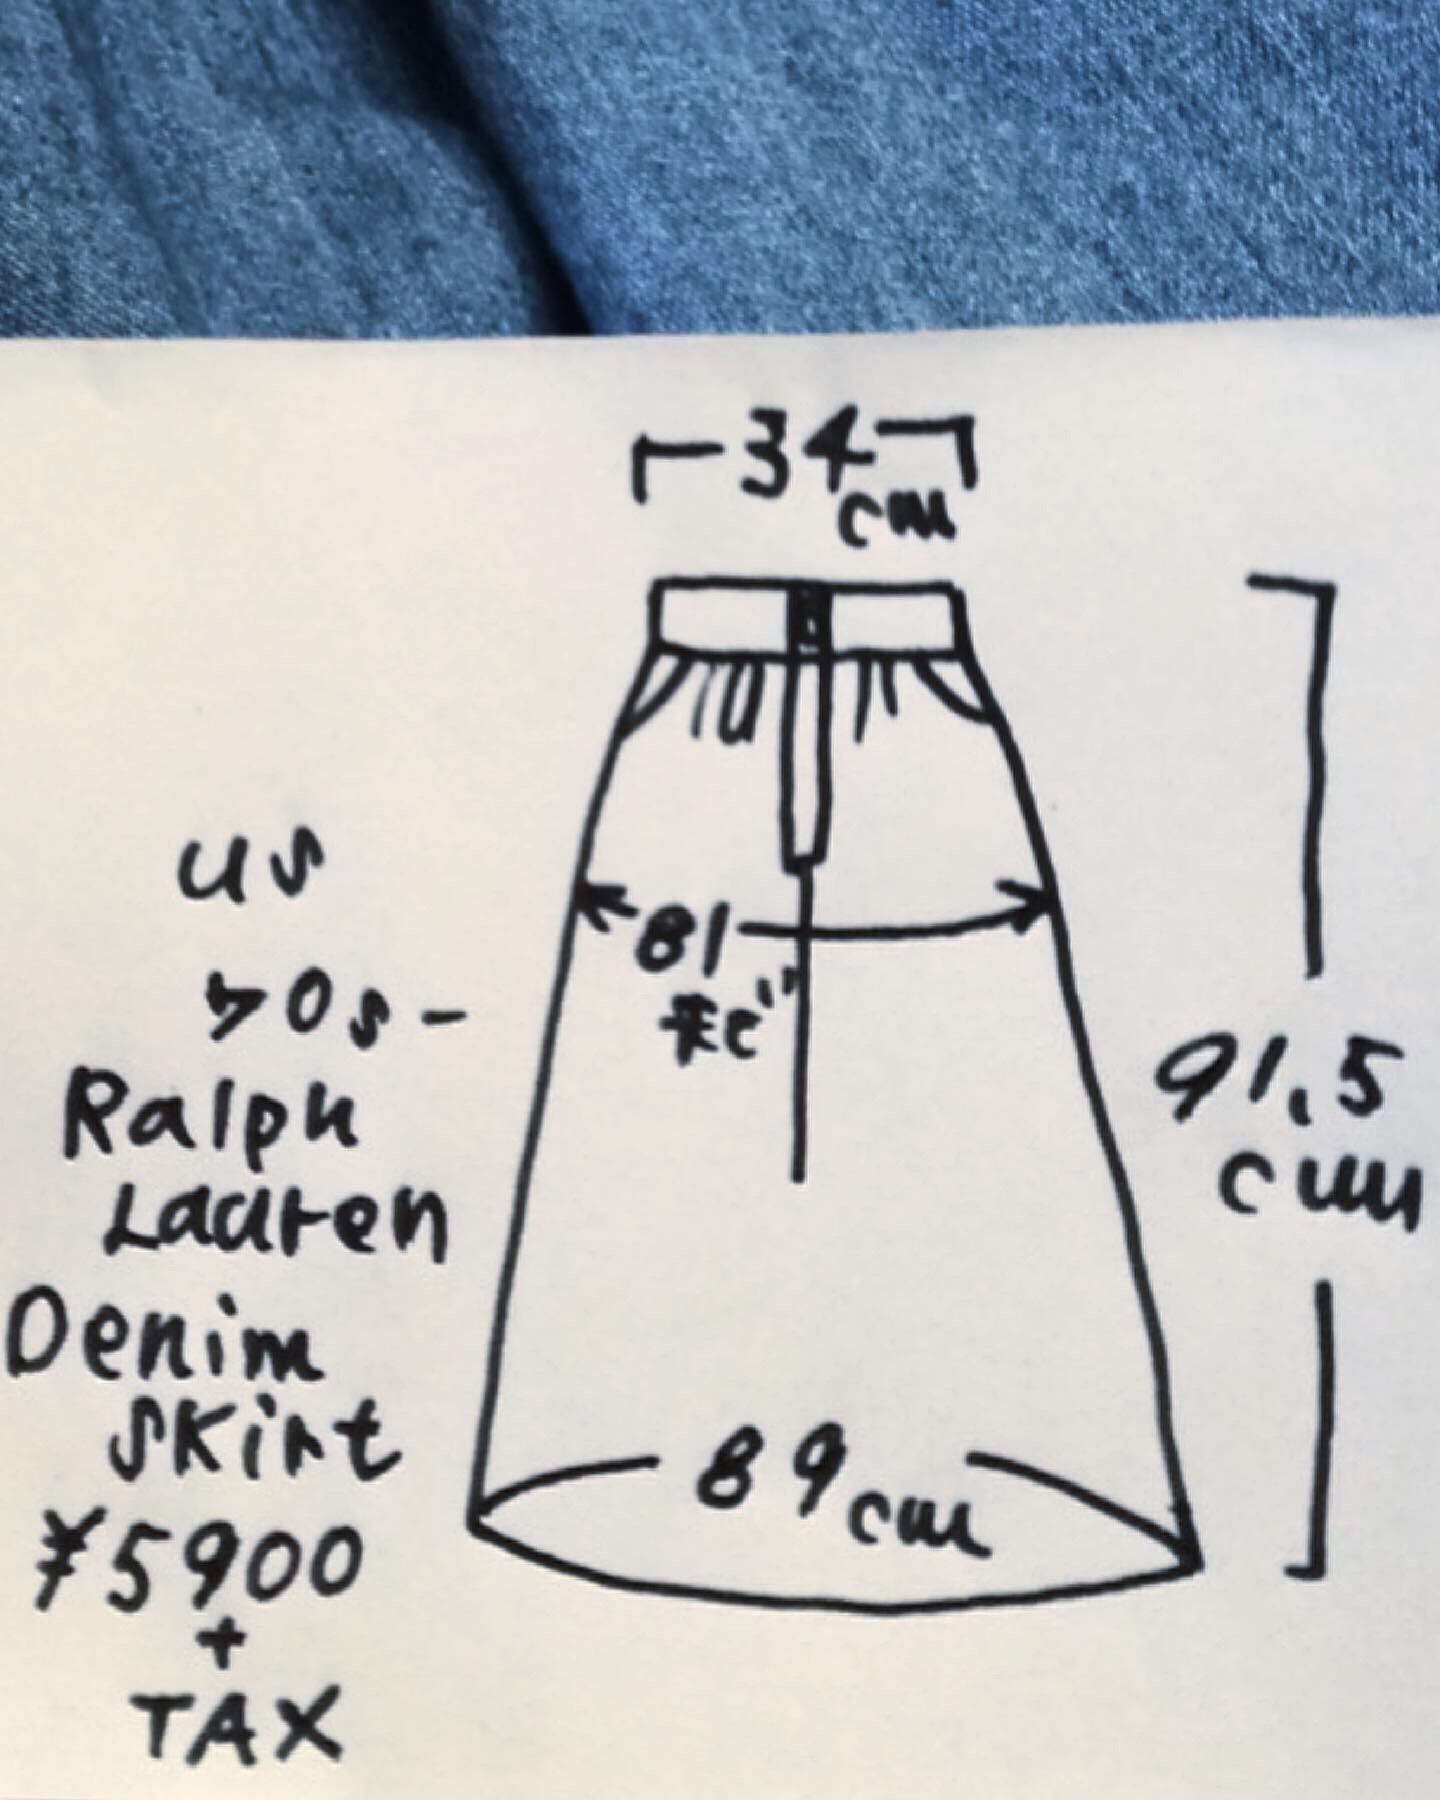 34
cm
US
70s -
Ralph
Lauren
Denim
Skirt
¥5900
+
TAX
81
91.5
cm
89cm